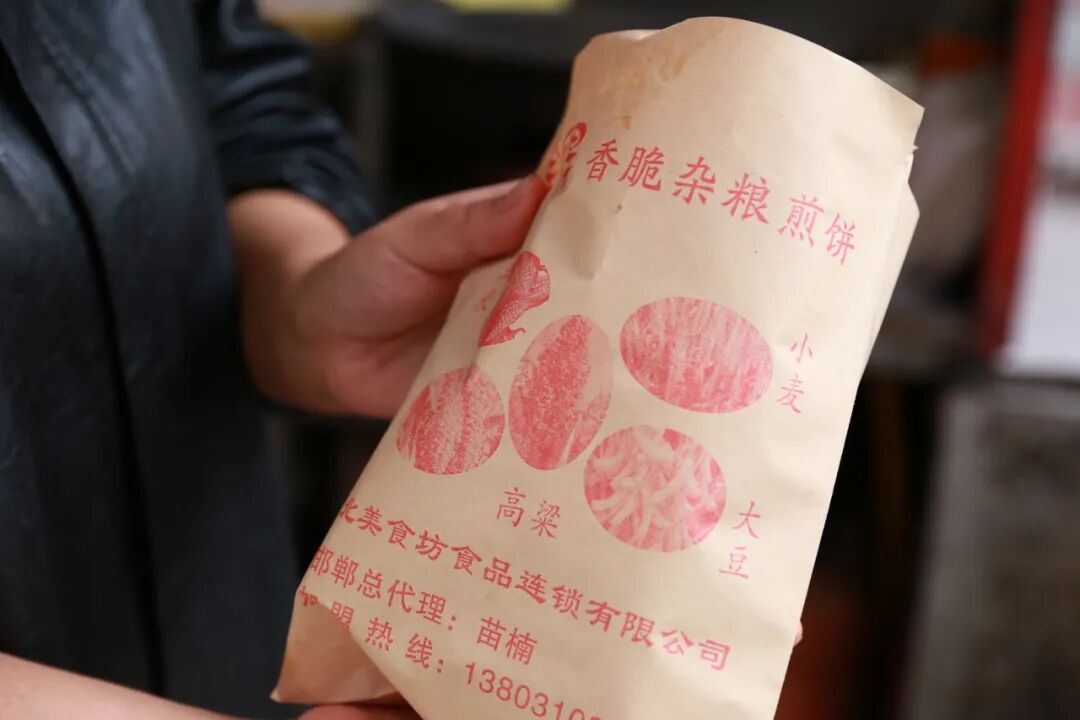 香脆杂粮煎饼
小麦
高粱
大豆
北美食坊食品连锁有限公司
邯郸总代理：苗楠
加盟热线：1380310